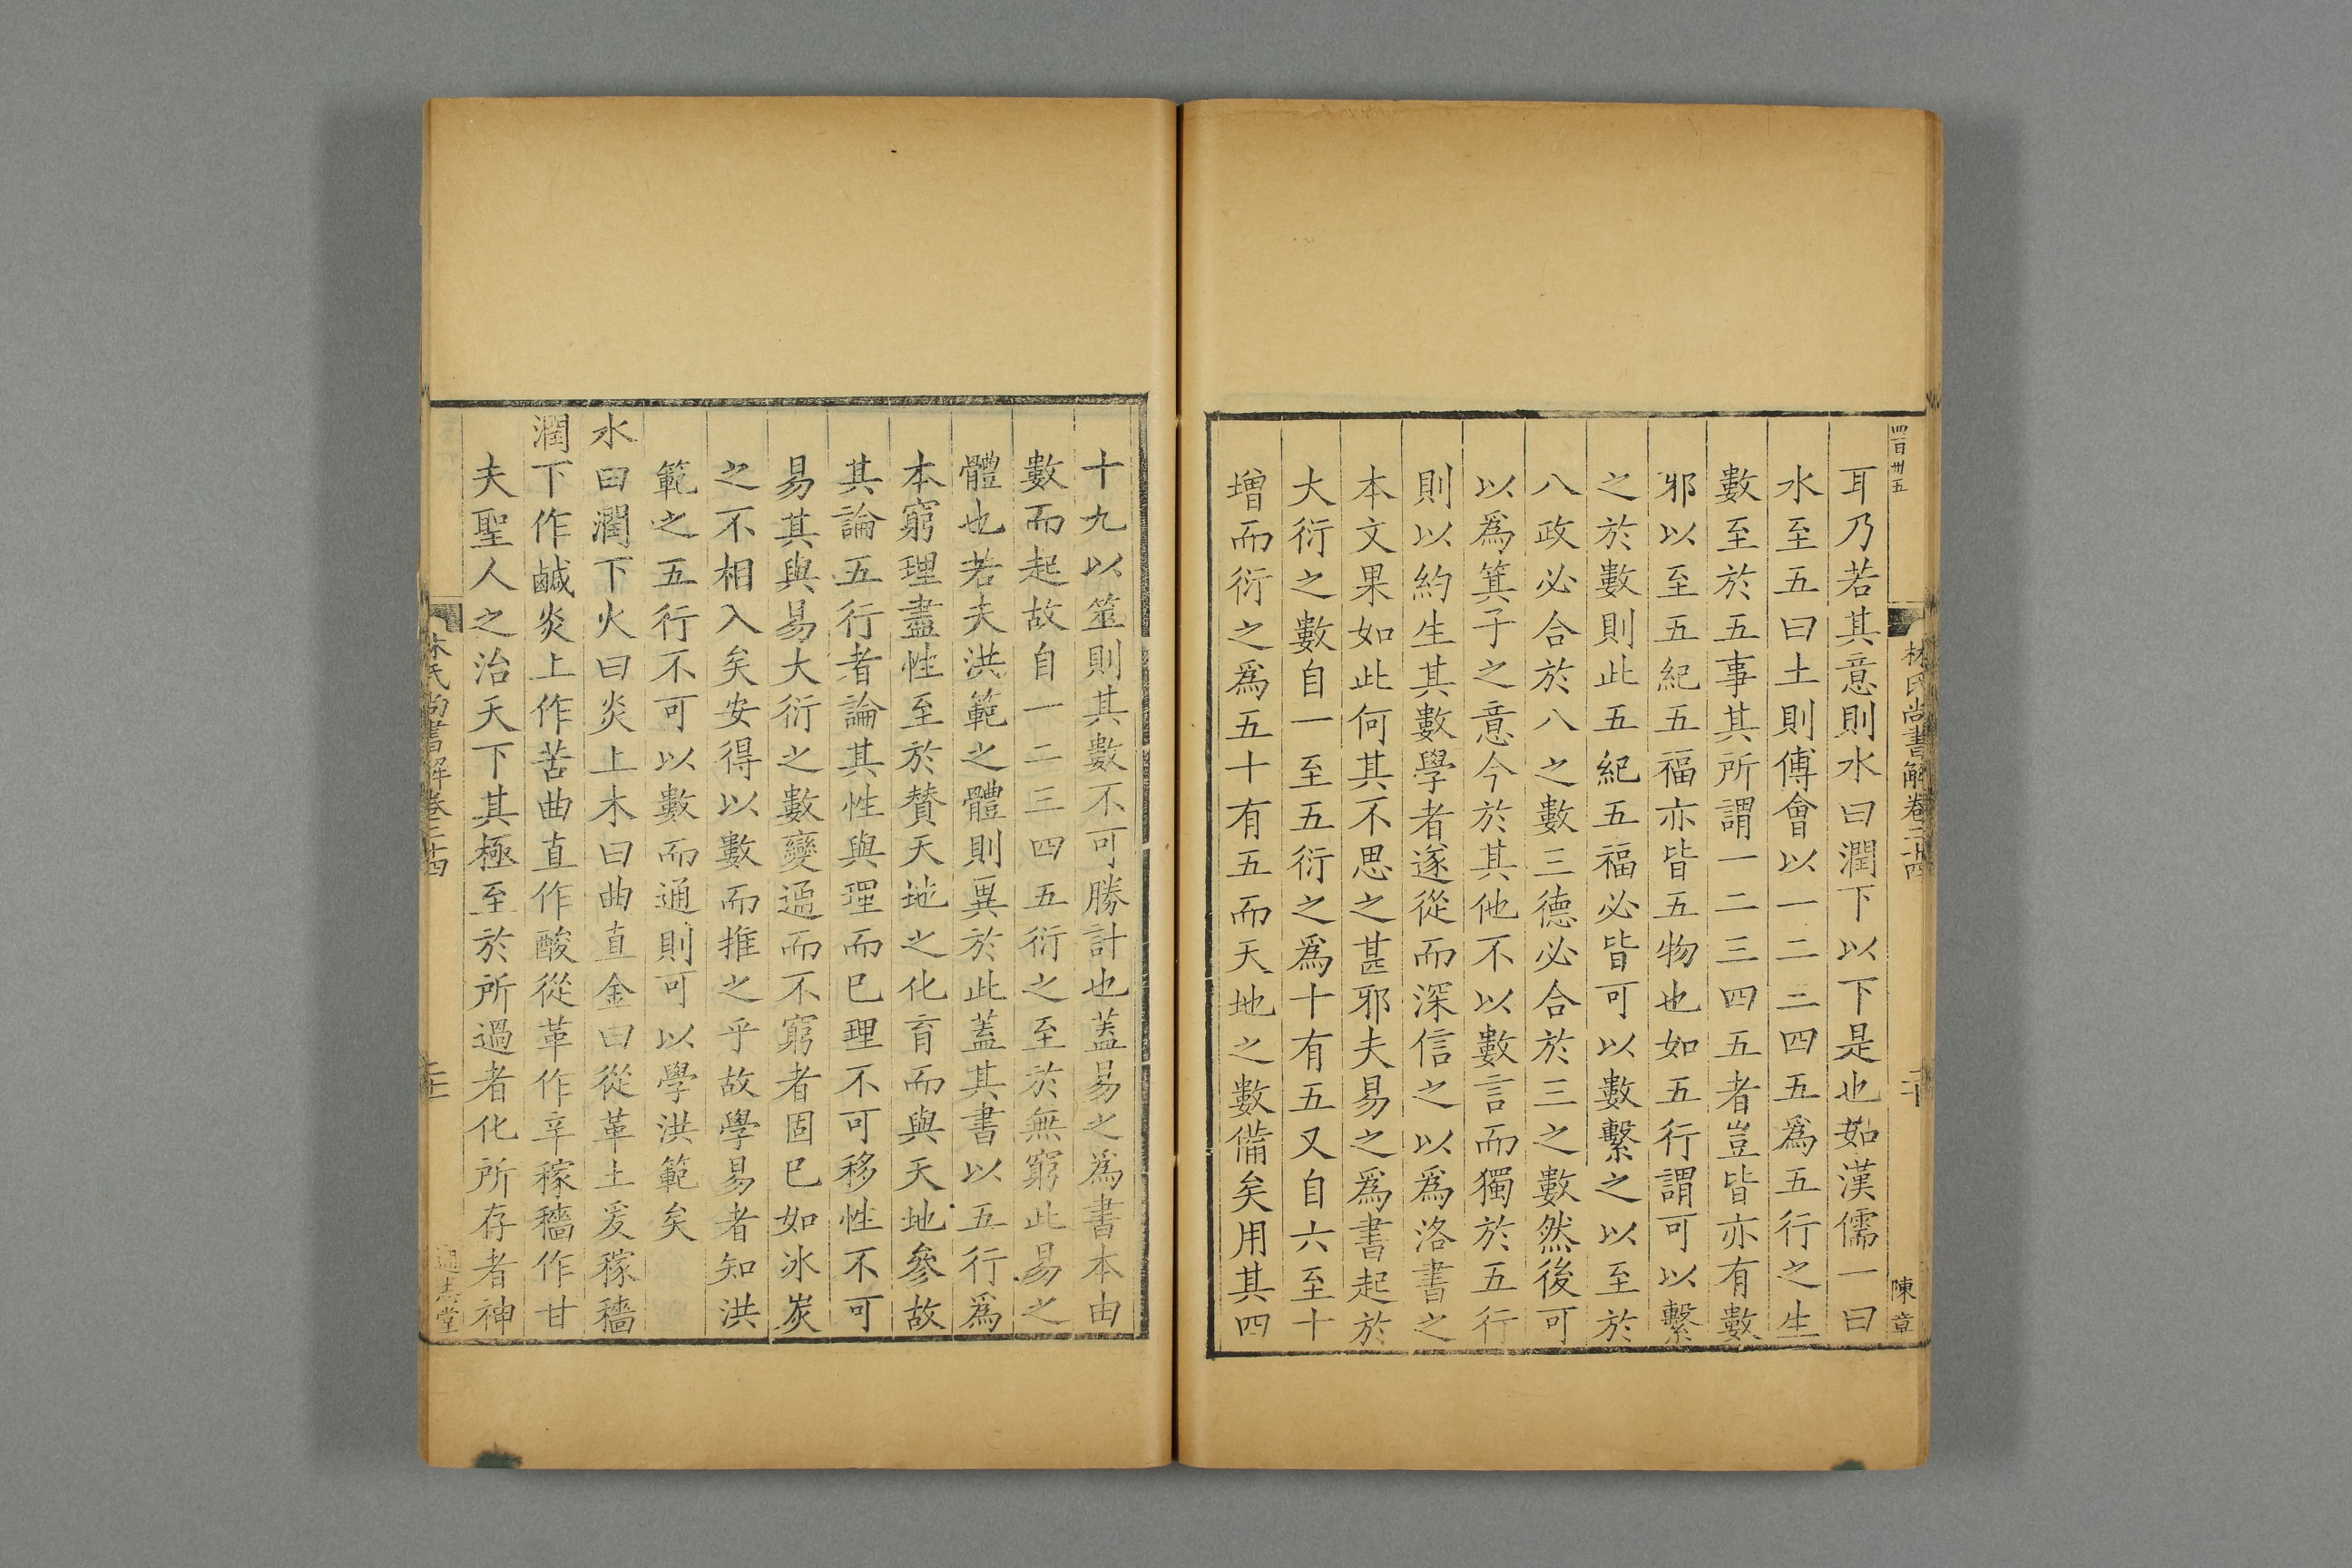 四百卅五
林氏尚書解卷二十四
二十
陳章
耳乃若其意則水曰潤下以下是也如漢儒一曰
水至五曰土則傅會以一二三四五爲五行之生
數至於五事其所謂一二三四五者豈皆亦有數
邪以至五紀五福亦皆五物也如五行謂可以繫
之於數則此五紀五福必皆可以數繫之以至於
八政必合於八之數三德必合於三之數然後可
以爲箕子之意今於其他不以數言而獨於五行
則以約生其數學者遂從而深信之以爲洛書之
本文果如此何其不思之甚邪夫易之爲書起於
大衍之數自一至五衍之爲十有五又自六至十
增而衍之爲五十有五而天地之數備矣用其四
十九以筮則其數不可勝計也蓋易之爲書本由
數而起故自一二三四五衍之至於無窮此易之
體也若夫洪範之體則異於此蓋其書以五行爲
本窮理盡性至於贊天地之化育而與天地參故
其論五行者論其性與理而已理不可移性不可
易其與易大衍之數變通而不窮者固已如冰炭
之不相入矣安得以數而推之乎故學易者知洪
範之五行不可以數而通則可以學洪範矣
水曰潤下火曰炎上木曰曲直金曰從革土爰稼穡
潤下作鹹炎上作苦曲直作酸從革作辛稼穡作甘
夫聖人之治天下其極至於所過者化所存者神
林氏尚書解卷二十四
通志堂